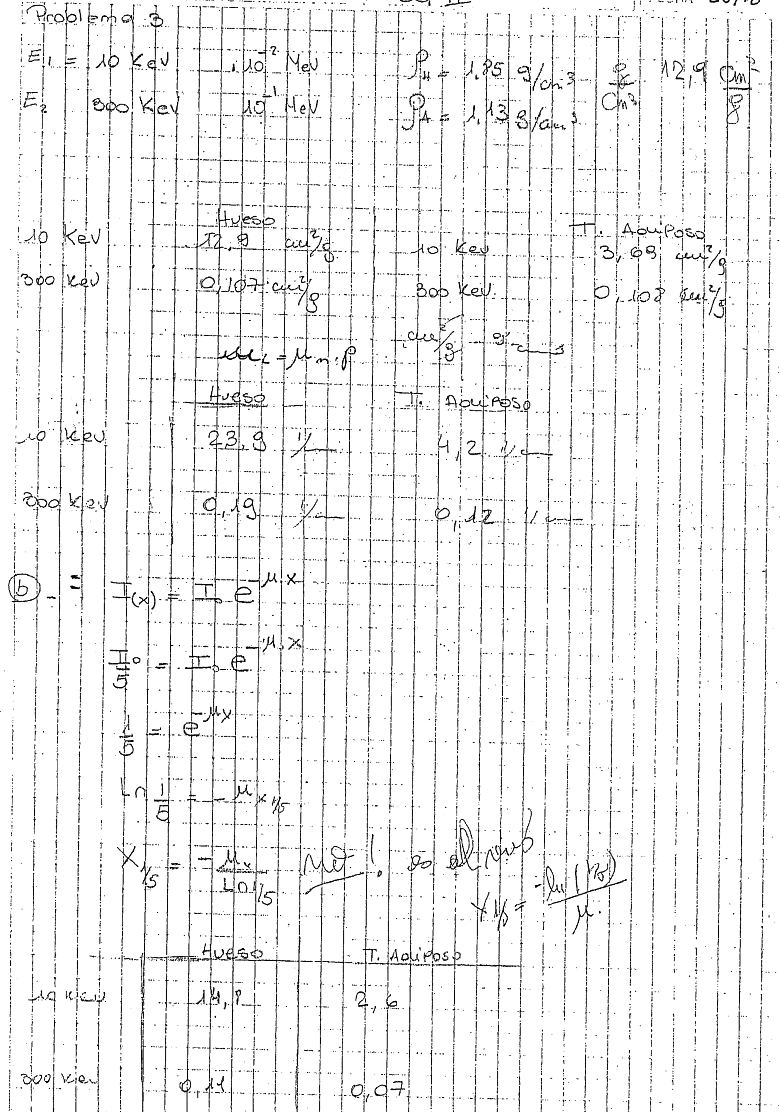 Problema 3
E₁ = 10 KeV .10⁻² MeV ρH = 1,85 g/cm³ g/cm³ 12,9 cm²/g
E₂ 300 KeV 10⁻¹ MeV ρA = 1,13 g/cm³
Hueso T. Adiposo
10 KeV 12,9 cm²/g 10 KeV 3,69 cm²/g
300 KeV 0,107 cm²/g 300 KeV 0,108 cm²/g
= μm.ρ cm²/g g/cm³
Hueso T. Adiposo
10 KeV 23,9 1/cm 4,2 1/cm
300 KeV 0,19 1/cm 0,12 1/cm
b) _ = I(x) = I₀ e^-μ.x
I₀/5 = I₀ e^-μ.x
1/5 = e^-μx
Ln 1/5 = -μ x1/5
X1/5 = -μx / Ln 1/5 no! es al revés
X1/5 = -ln(1/5) / μ.
Hueso T. Adiposo
10 KeV 14,8 2,6
300 KeV 0,11 0,07